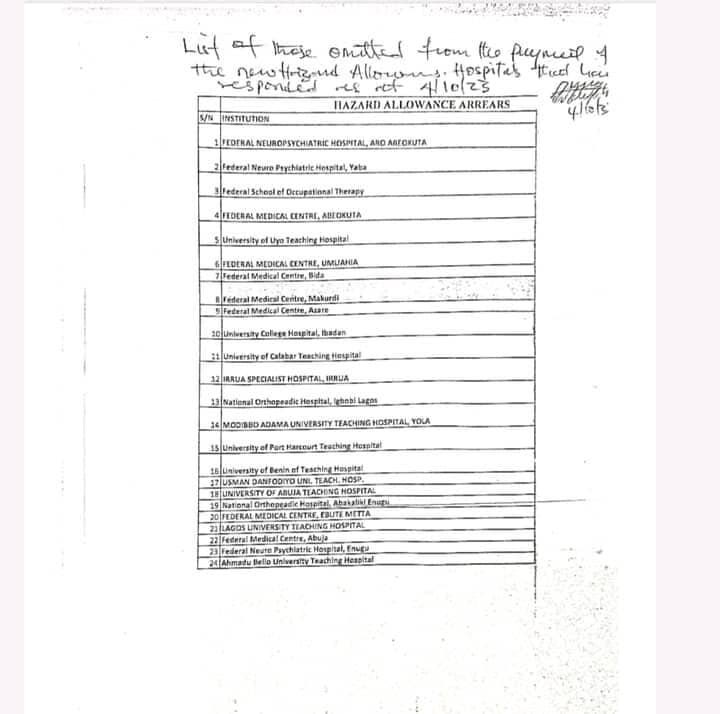 List of those omitted from the payment of
the new Hazard Allowans. Hospitals that have
responded as at 4/10/23
4/10/23
HAZARD ALLOWANCE ARREARS
S/N INSTITUTION
1 FEDERAL NEUROPSYCHIATRIC HOSPITAL, ARO ABEOKUTA
2 Federal Neuro Psychiatric Hospital, Yaba
3 Federal School of Occupational Therapy
4 FEDERAL MEDICAL CENTRE, ABEOKUTA
5 University of Uyo Teaching Hospital
6 FEDERAL MEDICAL CENTRE, UMUAHIA
7 Federal Medical Centre, Bida
8 Federal Medical Centre, Makurdi
9 Federal Medical Centre, Azare
10 University College Hospital, Ibadan
11 University of Calabar Teaching Hospital
12 IRRUA SPECIALIST HOSPITAL, IRRUA
13 National Orthopeadic Hospital, Igbobi Lagos
14 MODIBBO ADAMA UNIVERSITY TEACHING HOSPITAL, YOLA
15 University of Port Harcourt Teaching Hospital
16 University of Benin of Teaching Hospital
17 USMAN DANFODIYO UNI. TEACH. HOSP.
18 UNIVERSITY OF ABUJA TEACHING HOSPITAL
19 National Orthopeadic Hospital, Abakaliki Enugu
20 FEDERAL MEDICAL CENTRE, EBUTE METTA
21 LAGOS UNIVERSITY TEACHING HOSPITAL
22 Federal Medical Centre, Abuja
23 Federal Neuro Psychiatric Hospital, Enugu
24 Ahmadu Bello University Teaching Hospital